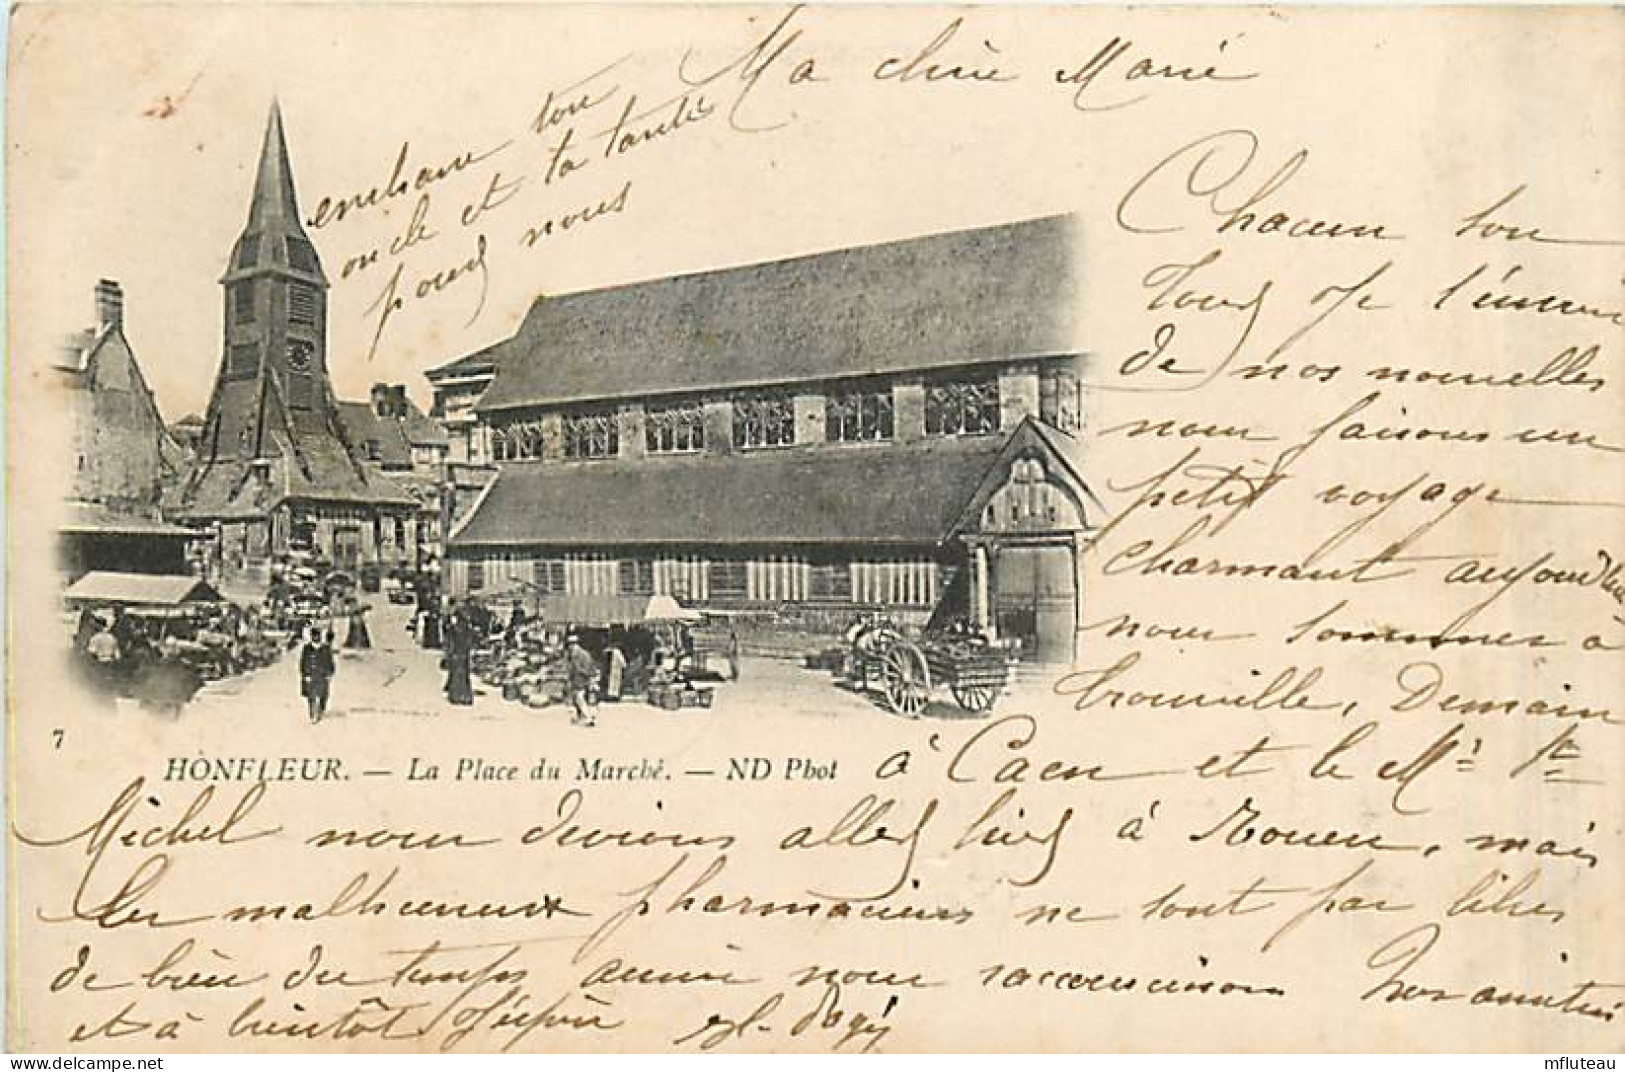 Ma chère Marie
embrasse ton
oncle et ta tante
pour nous
Chacun son
tour je t'envoie
de nos nouvelles
nous faisons un
petit voyage
charmant aujourd'hui
nous sommes à
Trouville, Demain
7
HONFLEUR. — La Place du Marché. — ND Phot
à Caen et le Mt St
Michel nous devions aller hier à Rouen, mais
les malheureux pharmaciens ne sont pas libres
de bien du temps aussi nous raccourcissons Nos amitiés
et à bientôt j'espère
mfluteau